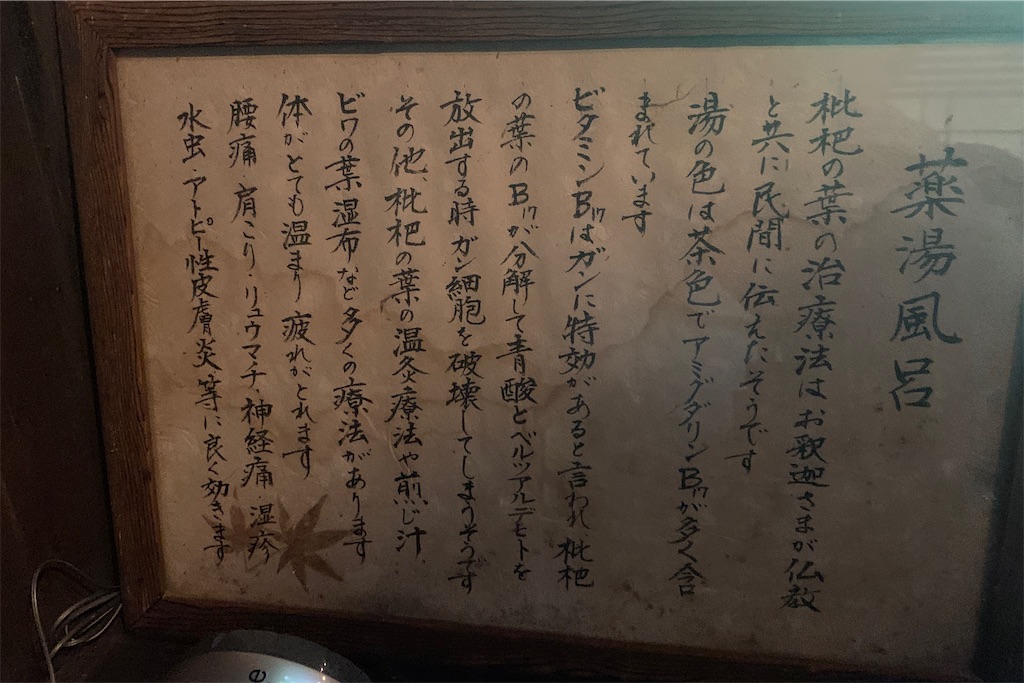 薬湯風呂
枇杷の葉の治療法はお釈迦さまが仏教
と共に民間に伝えたそうです
湯の色は茶色でアミグダリンB17が多く含
まれています
ビタミンB17はガンに特効があると言われ 枇杷
の葉のB17が分解して青酸とベルツアルデヒトを
放出する時ガン細胞を破壊してしまうそうです
その他、枇杷の葉の温灸療法や煎じ汁
ビワの葉湿布など多くの療法があります
体がとても温まり 疲れがとれます
腰痛・肩こり・リュウマチ・神経痛・湿疹
水虫・アトピー性皮膚炎等に良く効きます
e